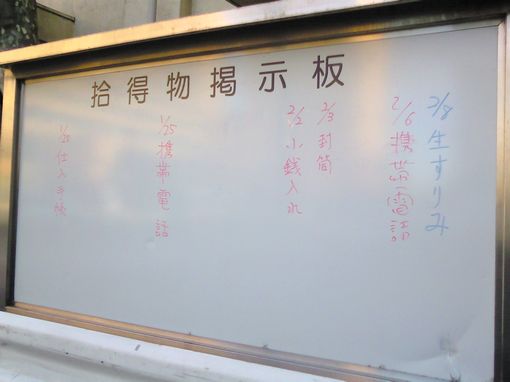 拾得物掲示板
2/8 生すりみ
2/6 携帯電話
2/3 封筒
2/2 小銭入れ
1/25 携帯電話
仕入手帳